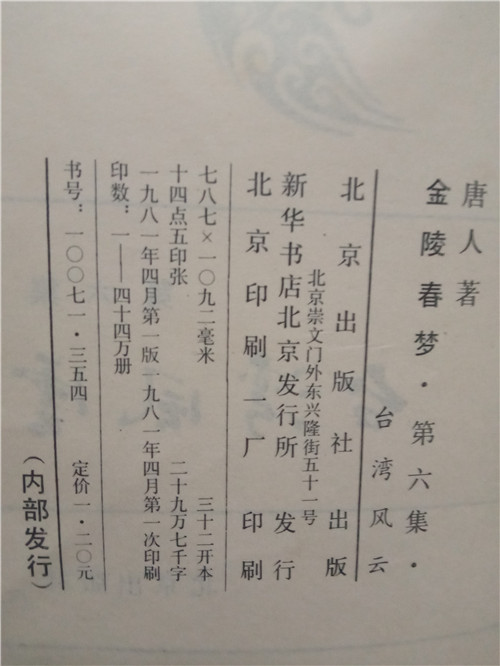 唐人著
金陵春梦·第六集·
台湾风云
北京出版社出版
北京崇文门外东兴隆街五十一号
新华书店北京发行所 发行
北京印刷一厂 印刷
七八七×一〇九二毫米 三十二开本
十四点五印张 二十九万七千字
一九八一年四月第一版一九八一年四月第一次印刷
印数：一——四十四万册
书号：一〇〇七一·三五四 定价一·二〇元
（内部发行）